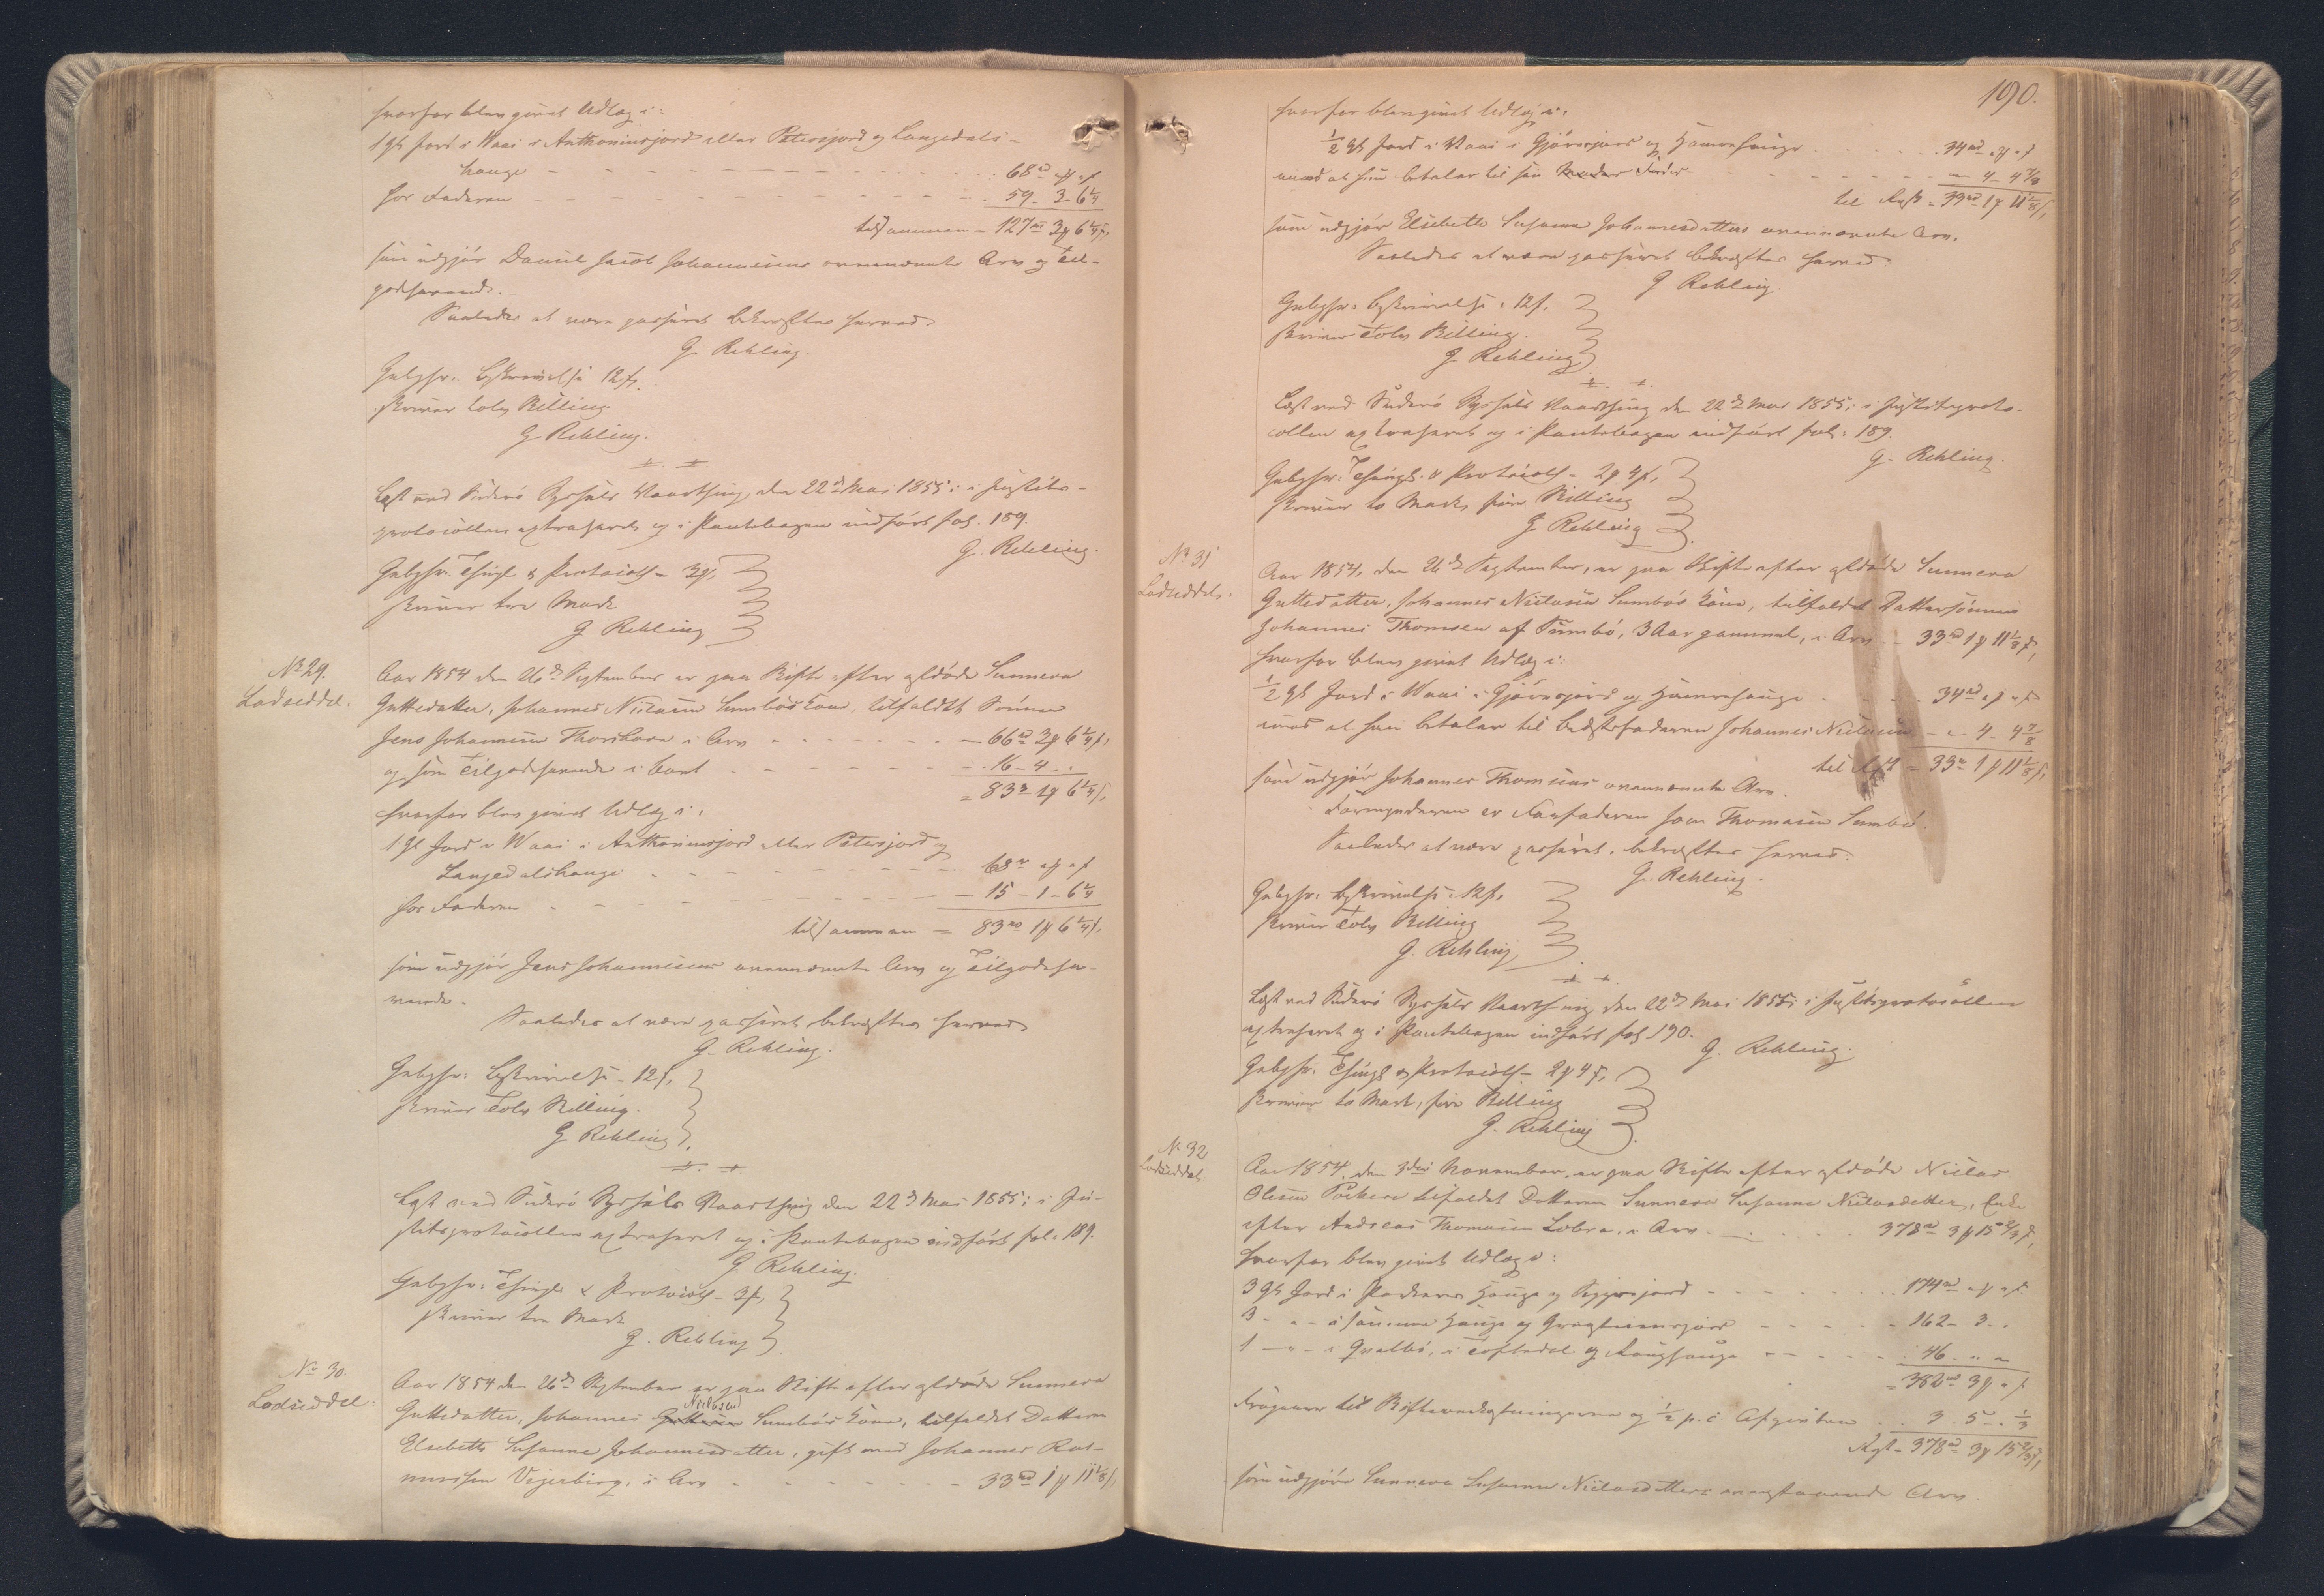 hvorfor blev givet Udlæg i:
1 Gl Jord i Waai i Anthoniusjord eller Petersjord og Langedals-
hauge - - - 68rd " ß " f
hos Faderen - - - 59 - 3 - 6 1/4
tilsammen - 127rd 3ß 6 1/4 f,
som udgjør Daniel Jacob Johannesens ovennævnte Arv og Til-
godehavende.
Saaledes at være passeret bekræftes herved.
G Rehling.
Gebyhr. Beskrivelse 12 f,
skriver tolv Skilling
G Rehling.
Læst ved Suderø Syssels Vaarthing, den 22de Mai 1855; i Justits-
protocollen extraheret og i Pantebogen indført fol. 189.
G. Rehling.
Gebyhr. Thingl. & Protocoll - 3ß,
skriver tre Mark
G Rehling
No 29.
Lodseddel.
Aar 1854 den 26de September er paa Skifte efter afdøde Sunneva
Guttedatter, Johannes Niclasen Sumbøs Kone, tilfaldt Sønnen
Jens Johannesen Thorshavn i Arv - - - 66rd 3ß 6 1/4 f,
og som Tilgodehavende i Boet - - - 16 - 4 - "
= 83rd 1ß 6 1/4 f,
hvorfor blev givet Udlæg i:
1 Gl Jord i Waai i Anthoniusjord eller Petersjord og
Langedalshauge - - - 68rd " ß " f
hos Faderen - - - 15 - 1 - 6 1/4
tilsammen = 83rd 1ß 6 1/4 f,
som udgjør Jens Johannesens ovennævnte Arv og Tilgodeha-
vende.
Saaledes at være passeret, bekræftes herved
G. Rehling.
Gebyhr: Beskrivelse - 12 f,
skriver Tolv Skilling.
G Rehling
Læst ved Suderø Syssels Vaarthing den 22de Mai 1855; i Ju-
stitsprotocollen extraheret og i Pantebogen indført fol: 189.
G. Rehling.
Gebyhr: Thingl. & Protocoll - 3ß,
skriver tre Mark
G. Rehling
No 30.
Lodseddel.
Aar 1854 den 26de September er paa Skifte efter afdøde Sunneva
Niclasen
Guttedatter, Johannes Sumbøs Kone, tilfaldet Datteren
Elsebeth Susanne Johannesdatter, gift med Johannes Ras-
mussen Vejerbirg, i Arv - - - 33rd 1ß 11 1/8 f,
190.
hvorfor blev givet Udlæg i:
1/2 Gl Jord i Waai i Gjøvrsjord og Hamrehauge - - - 34rd " ß " f
mod at hun betaler til sin Fader - - - " - 4 - 4 7/8
til Rest = 33rd 1ß 11 1/8 f,
som udgjør Elsebeth Susanne Johannesdatters ovennævnte Arv.
Saaledes at være passeret bekræftes herved.
G Rehling.
Gebyhr: Beskrivelse: 12 f,
skriver Tolv Skilling.
G Rehling
Læst ved Suderø Syssels Vaarthing den 22de Mai 1855; i Justitsproto-
collen extraheret og i Pantebogen indført fol: 189.
G. Rehling.
Gebyhr: Thingl. & Protocoll - 2ß 4 f,
skriver to Mark, fire Skilling
G Rehling
No 31
Lodseddel.
Aar 1854, den 26de September, er paa Skifte efter afdøde Sunneva
Guttedatter, Johannes Niclasen Sumbøs Kone, tilfaldet Dattersønnen
Johannes Thomsen af Sumbø, 3 Aar gammel, i Arv - 33rd 1ß 11 1/8 f,
hvorfor blev givet Udlæg i:
1/2 Gl Jord i Waai i Gjøvrsjord og Hamrehauge - - - 34rd " ß " f
mod at han betaler til Bedstefaderen Johannes Niclasen - " - 4 - 4 7/8
til Rest = 33rd 1ß 11 1/8 f,
som udgjør Johannes Thomsens ovennævnte Arv.
Formynderen er Farfaderen Joen Thomasen Sumbø.
Saaledes at være passeret, bekræftes herved:
G. Rehling.
Gebyhr: Beskrivelse: 12 f,
skriver Tolv Skilling
G. Rehling
Læst ved Suderø Syssels Vaarthing den 22de Mai 1855; i Justitsprotocollen
extraheret og i Pantebogen indført fol 190.
G. Rehling.
Gebyhr. Thingl. & Protocoll - 2ß 4 f,
skriver to Mark, fire Skilling
G. Rehling
No 32
Lodseddel.
Aar 1854, den 3die November, er paa Skifte efter afdøde Niclas
Olesen Porkere tilfaldet Datteren Sunneva Susanne Niclasdatter, Enke
efter Andreas Thomasen Lobra, i Arv - - - 378rd 3ß 15 2/3 f,
hvorfor blev givet Udlæg i:
3 Gl Jord i Porkeres Hauge og - - - 174rd " ß " f
3 - " - i samme Hauge og - - - 162 - 3 - "
1 - " - i Qvalbø, i og - - - 46 " "
= 382rd 3ß " f
Fragaaer til Skifteomkostningerne og 1/2 p. C. Afgiften - - 3 - 5 - " 1/3
Rest - 378rd 3ß 15 2/3 f,
som udgjør Sunneva Susanne Niclasdatters ovenstaaende Arv.